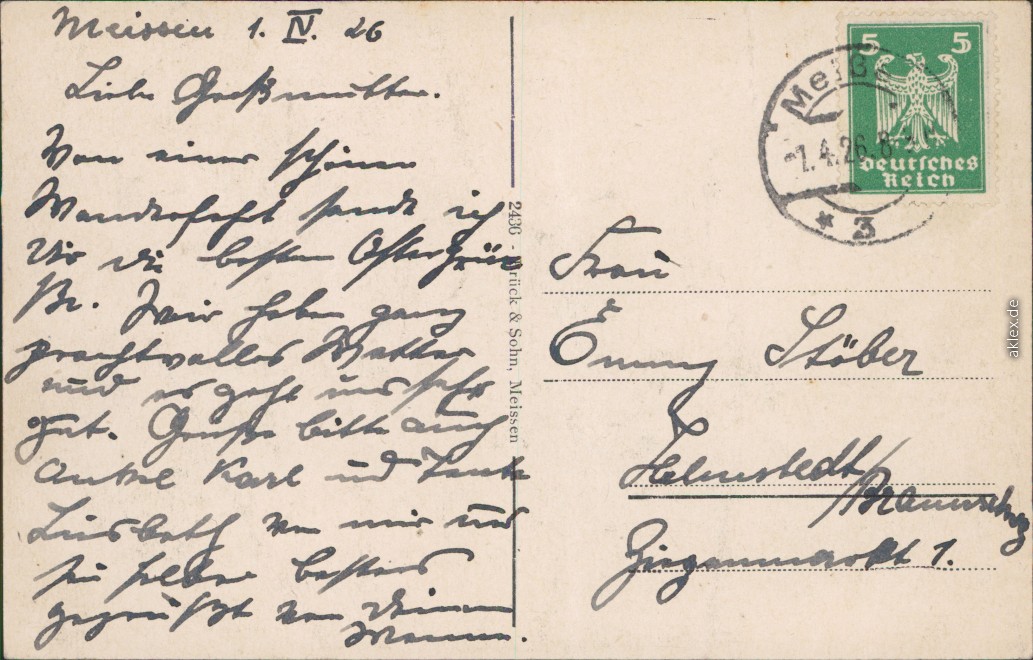 Meissen 1. IV. 26
Liebe Großmutter.
Von einer schönen
Wanderfahrt sende ich
Dir die besten Ostergrü
ße. Wir haben ganz
prachtvolles Wetter
und es geht uns sehr
gut. Grüße bitte auch
Onkel Karl und Tante
Liesbeth von mir und
sei selber bestens
gegrüßt von Deinem
2436 - Brück & Sohn, Meissen
5 5
Deutsches
Reich
Meiß
1.4.26.8
* 3
Frau
Emmy Stöber
Helmstedt/Braunschwg
Ziegenmarkt 1.
aklex.de